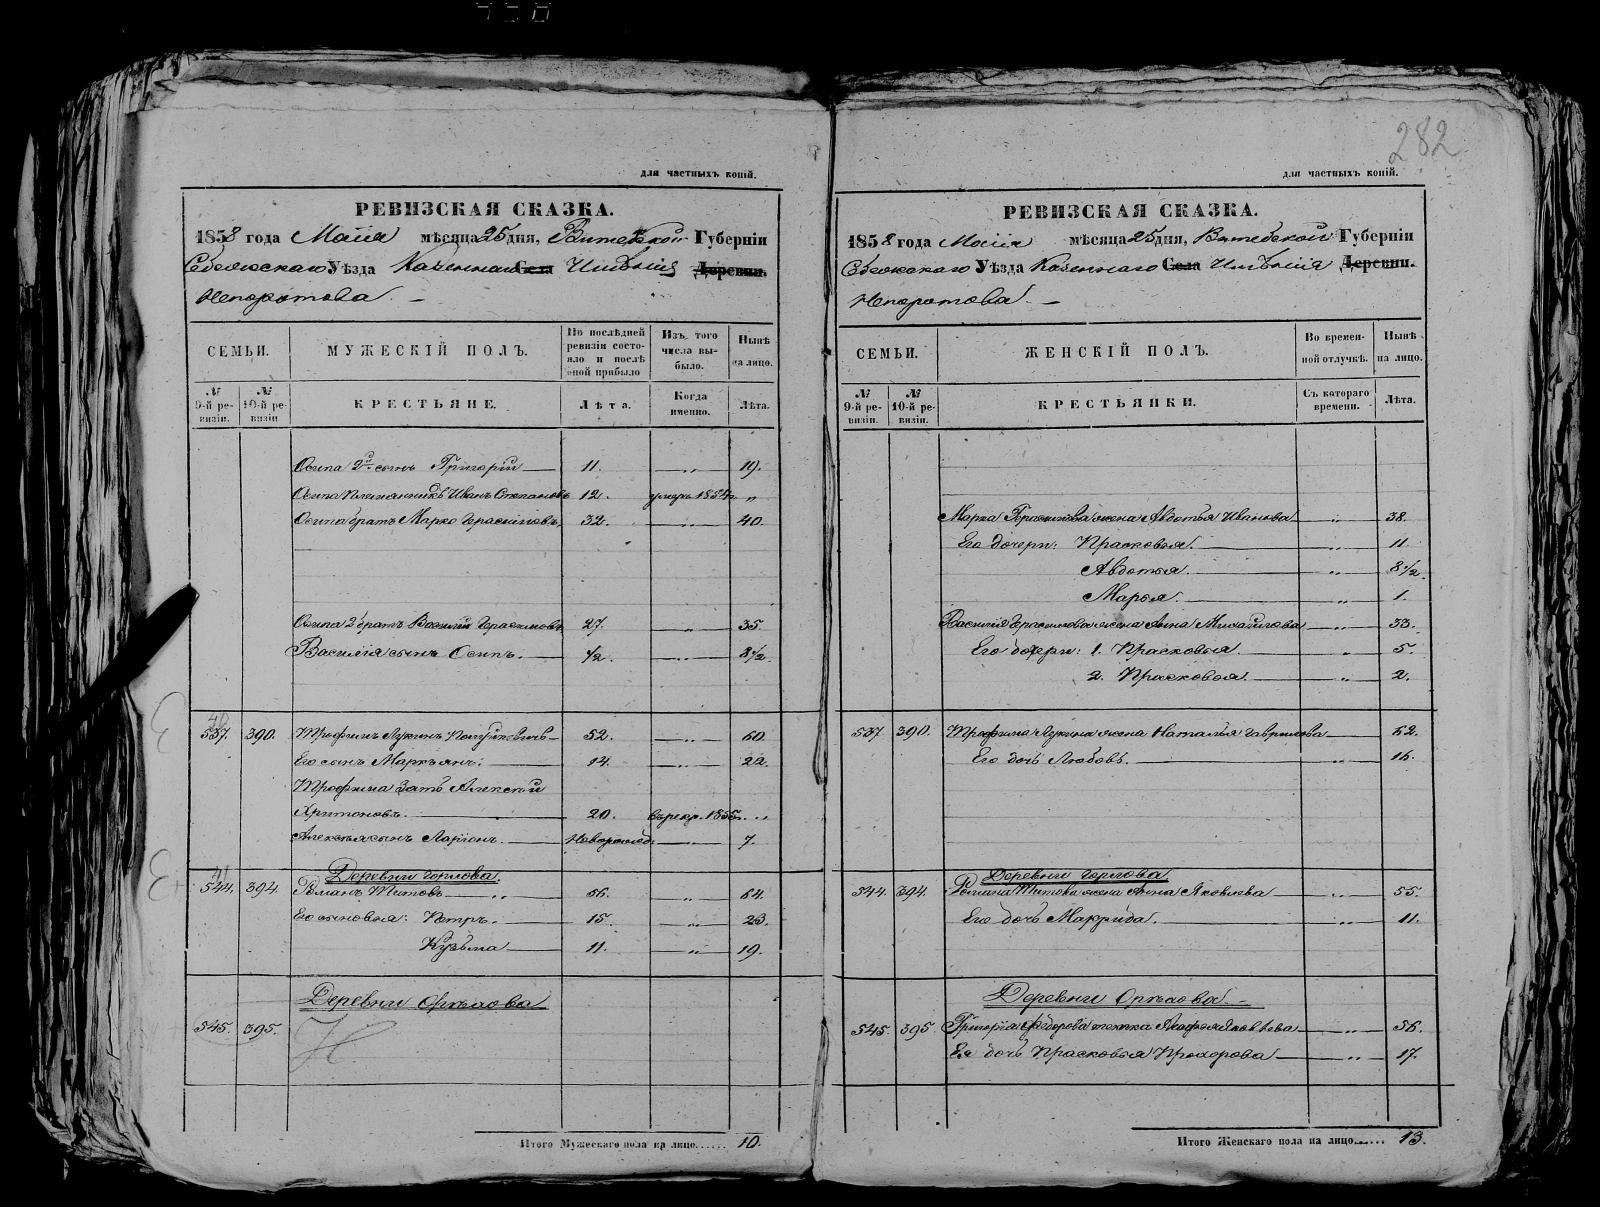 282
для частныхъ копій.
РЕВИЗСКАЯ СКАЗКА.
1858 года Маія мѣсяца 25 дня, Витебской Губерніи
Себежскаго Уѣзда Казеннаго Села Имѣнія Деревни.
Непоротова.
СЕМЬИ.
МУЖЕСКІЙ ПОЛЪ.
По послѣдней ревизіи состояло и послѣ оной прибыло
Изъ того числа выбыло.
Нынѣ на лицо.
№ 9-й ревизіи.
№ 10-й ревизіи
КРЕСТЬЯНЕ.
Лѣта.
Когда именно.
Лѣта.
Осипа 2й сынъ Григорій 11. 19.
Осипа племянникъ Иванъ Степановъ 12. умеръ 1854 „
Осипа братъ Марко Герасимовъ 32. 40.
Осипа 2 братъ Василій Герасимовъ 27. 35
Василія сынъ Осипъ. 1/2 8 1/2
537. 390. Трофимъ Лукинъ 52. 60.
Его сынъ Маркъянъ. 14. 22.
Трофима зять Алексѣй
Харитоновъ. 20. въ рекр. 1855. „
Алексѣя сынъ Ларіонъ. новорожд. 7.
Деревни Горлова.
544. 394. Романъ Титовъ 56. 64.
Его сыновья: Петръ. 15. 23.
Кузьма 11. 19.
Деревни
545. 395.
Н
Итого Мужескаго пола на лицо...... 10.
для частныхъ копій.
РЕВИЗСКАЯ СКАЗКА.
1858 года Маія мѣсяца 25 дня, Витебской Губерніи
Себежскаго Уѣзда Казеннаго Села Имѣнія Деревни.
Непоротова.
СЕМЬИ.
ЖЕНСКІЙ ПОЛЪ.
Во временной отлучкѣ.
Нынѣ на лицо.
№ 9-й ревизіи.
№ 10-й ревизіи.
КРЕСТЬЯНКИ.
Съ котораго времени.
Лѣта.
Марка Герасимова жена Авдотья Иванова „ 38.
Его дочери: Прасковья. „ 11
Авдотья. „ 8 1/2
Марья. „ 1.
Василія Герасимова жена Анна Михайлова „ 33.
Его дочери: 1. Прасковья. „ 5.
2. Прасковья. „ 2.
537 390. Трофима Лукина жена Наталья Гаврилова „ 52.
Его дочь Любовь. „ 16.
Деревни Горлова
544. 394. Романа Титова жена Анна Яковлева „ 55.
Его дочь Макрида. „ 11.
Деревни
545. 395. Григорія Ѳедорова „ 56.
Ея дочь Прасковья Прохорова „ 17.
Итого Женскаго пола на лицо...... 13.